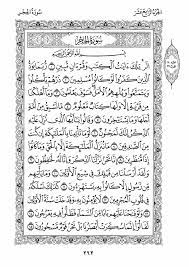 الجزء الرابع عشر
سورة الحجر
سورة الحجر
بسم الله الرحمن الرحيم
الر تلك ءايت الكتب وقرءان مبين ۝١ ربما يود
الذين كفروا لو كانوا مسلمين ۝٢ ذرهم يأكلوا
ويتمتعوا ويلههم الأمل فسوف يعلمون ۝٣ وما أهلكنا
من قرية إلا ولها كتاب معلوم ۝٤ ما تسبق من أمة أجلها
وما يستـٔخرون ۝٥ وقالوا يأيها الذي نزل عليه الذكر إنك
لمجنون ۝٦ لو ما تأتينا بالملئكة إن كنت من الصدقين ۝٧
ما ننزل الملئكة إلا بالحق وما كانوا إذا منظرين ۝٨ إنا نحن
نزلنا الذكر وإنا له لحفظون ۝٩ ولقد أرسلنا من قبلك في شيع
الأولين ۝١٠ وما يأتيهم من رسول إلا كانوا به يستهزءون ۝١١
كذلك نسلكه في قلوب المجرمين ۝١٢ لا يؤمنون به وقد خلت
سنة الأولين ۝١٣ ولو فتحنا عليهم بابا من السماء فظلوا فيه يعرجون ۝١٤
لقالوا إنما سكرت أبصرنا بل نحن قوم مسحورون ۝١٥
٢٦٢